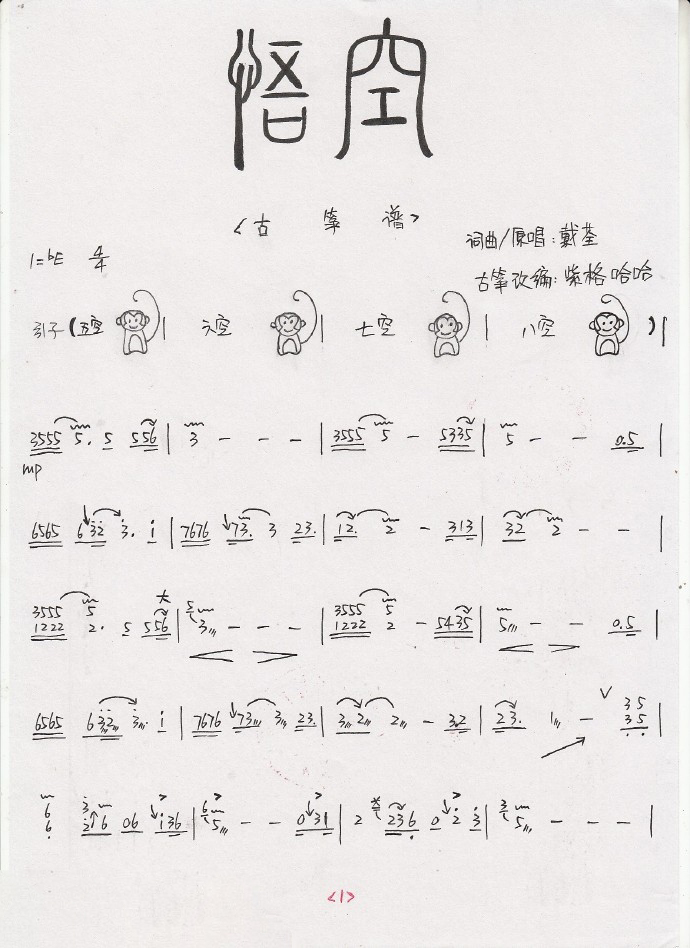 悟空
<古筝谱>
词曲/原唱:戴荃
1=bE 4/4
古筝改编:紫格哈哈
引子(五空 | 六空 | 七空 | 八空 )|
3555 5. 5 556 | 3 - - - | 3555 5 - 5335 | 5 - - 0.5 |
mp
6565 632 3. i | 7676 73. 3 23. | 12. 2 - 313 | 32 2 - - |
3555 5 大 5 3555 5
1222 2. 5 556 | 3 - - - | 1222 2 - 5435 | 5 - - 0.5 |
6565 632 3. i | 7676 73 3 23. | 3 2 2 - 32 | 23. 1 - 35 |
35
6 3 6 3
6 2 6 06 i36 | 5 - - 031 | 2 236 0 2 3 | 5 - - - |
<1>